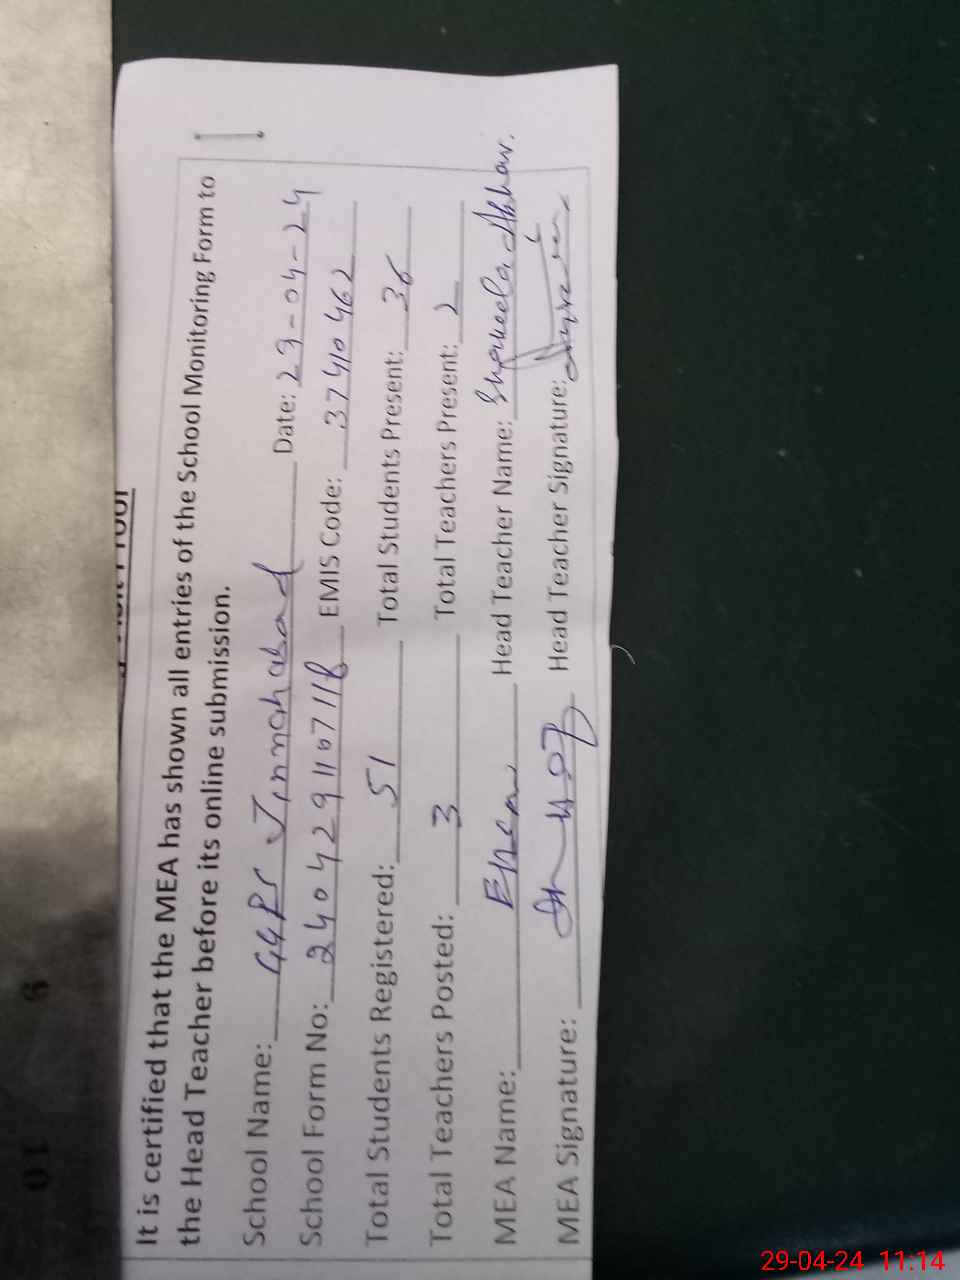 It is certified that the MEA has shown all entries of the School Monitoring Form to
the Head Teacher before its online submission.
School Name: GGPS Jinnahabad Date: 29-04-24
School Form No: 240429110711B EMIS Code: 37410462
Total Students Registered: 51 Total Students Present: 36
Total Teachers Posted: 3 Total Teachers Present: 2
MEA Name: Head Teacher Name: Shakeela Akhtar.
MEA Signature: Head Teacher Signature:
10
9
29-04-24 11:14